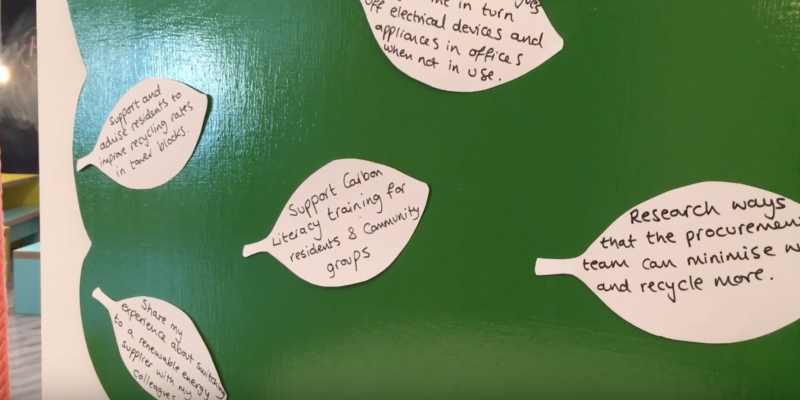 in turn
off electrical devices and
appliances in offices
when not in use.
Support and
advise residents to
improve recycling rates
in tower blocks.
Support Carbon
Literacy training for
residents & Community
groups
Research ways
that the
team can minimise
and recycle more.
Share my
experience about switching
to a renewable energy
supplier with my
colleagues